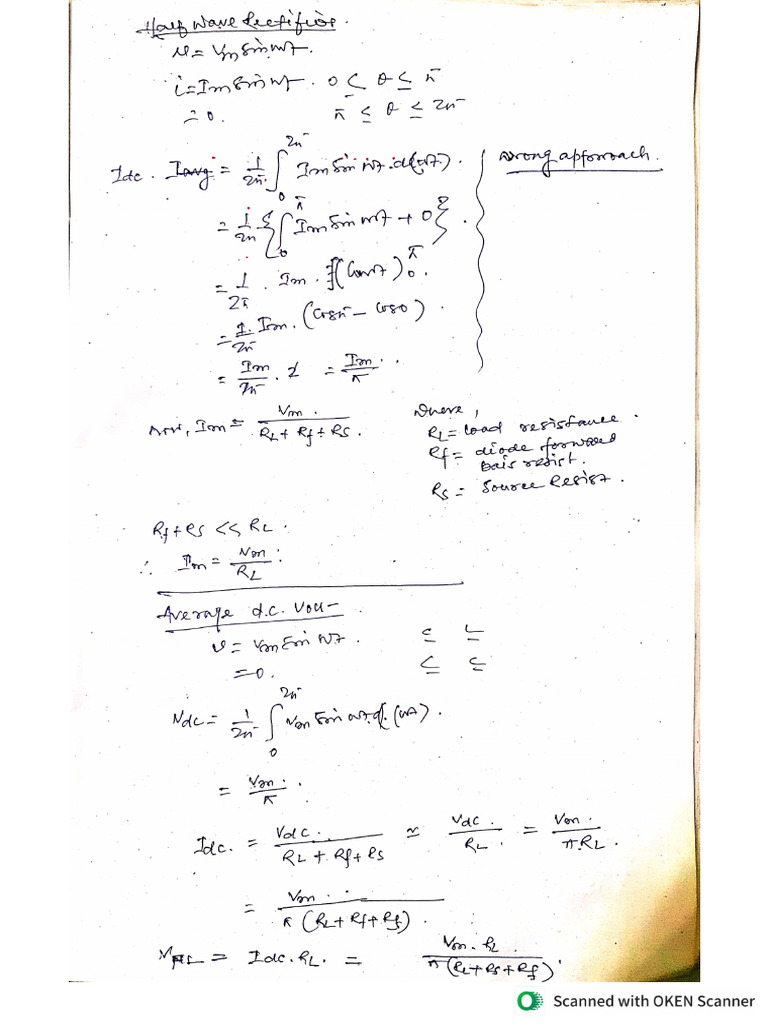 Half Wave Rectifier.
v = Vm Sin wt.
i = Im Sin wt. 0 < θ ≤ π
= 0. π ≤ θ ≤ 2π
Idc. Iavg = 1/2π ∫_0^2π Im Sin wt. d(wt).
wrong approach.
= 1/2π {∫_0^π Im Sin wt + 0}.
= 1/2π . Im . [(Cos wt)_0^π.
= 1/2π. Im. (Cosπ - Cos0).
= Im/2π . 2 = Im/π.
Now, Im = Vm/(RL + Rf + Rs)
where,
RL = Load resistance.
Rf = diode forward
bais resist.
Rs = Source Resist.
Rf + Rs << RL.
∴ Im = Vm/RL.
Average d.c. Volt
v = Vm Sin wt. ≤ ≤
= 0. ≤ ≤
Vdc = 1/2π ∫_0^2π Vm Sin wt. d(wt).
= Vm/π.
Idc. = Vdc./(RL + Rf + Rs) ≃ Vdc./RL. = Vm./π.RL.
= Vm./π(RL + Rf + Rf).
= Idc. RL. = Vm. RL./π(RL + Rs + Rf).
Scanned with OKEN Scanner